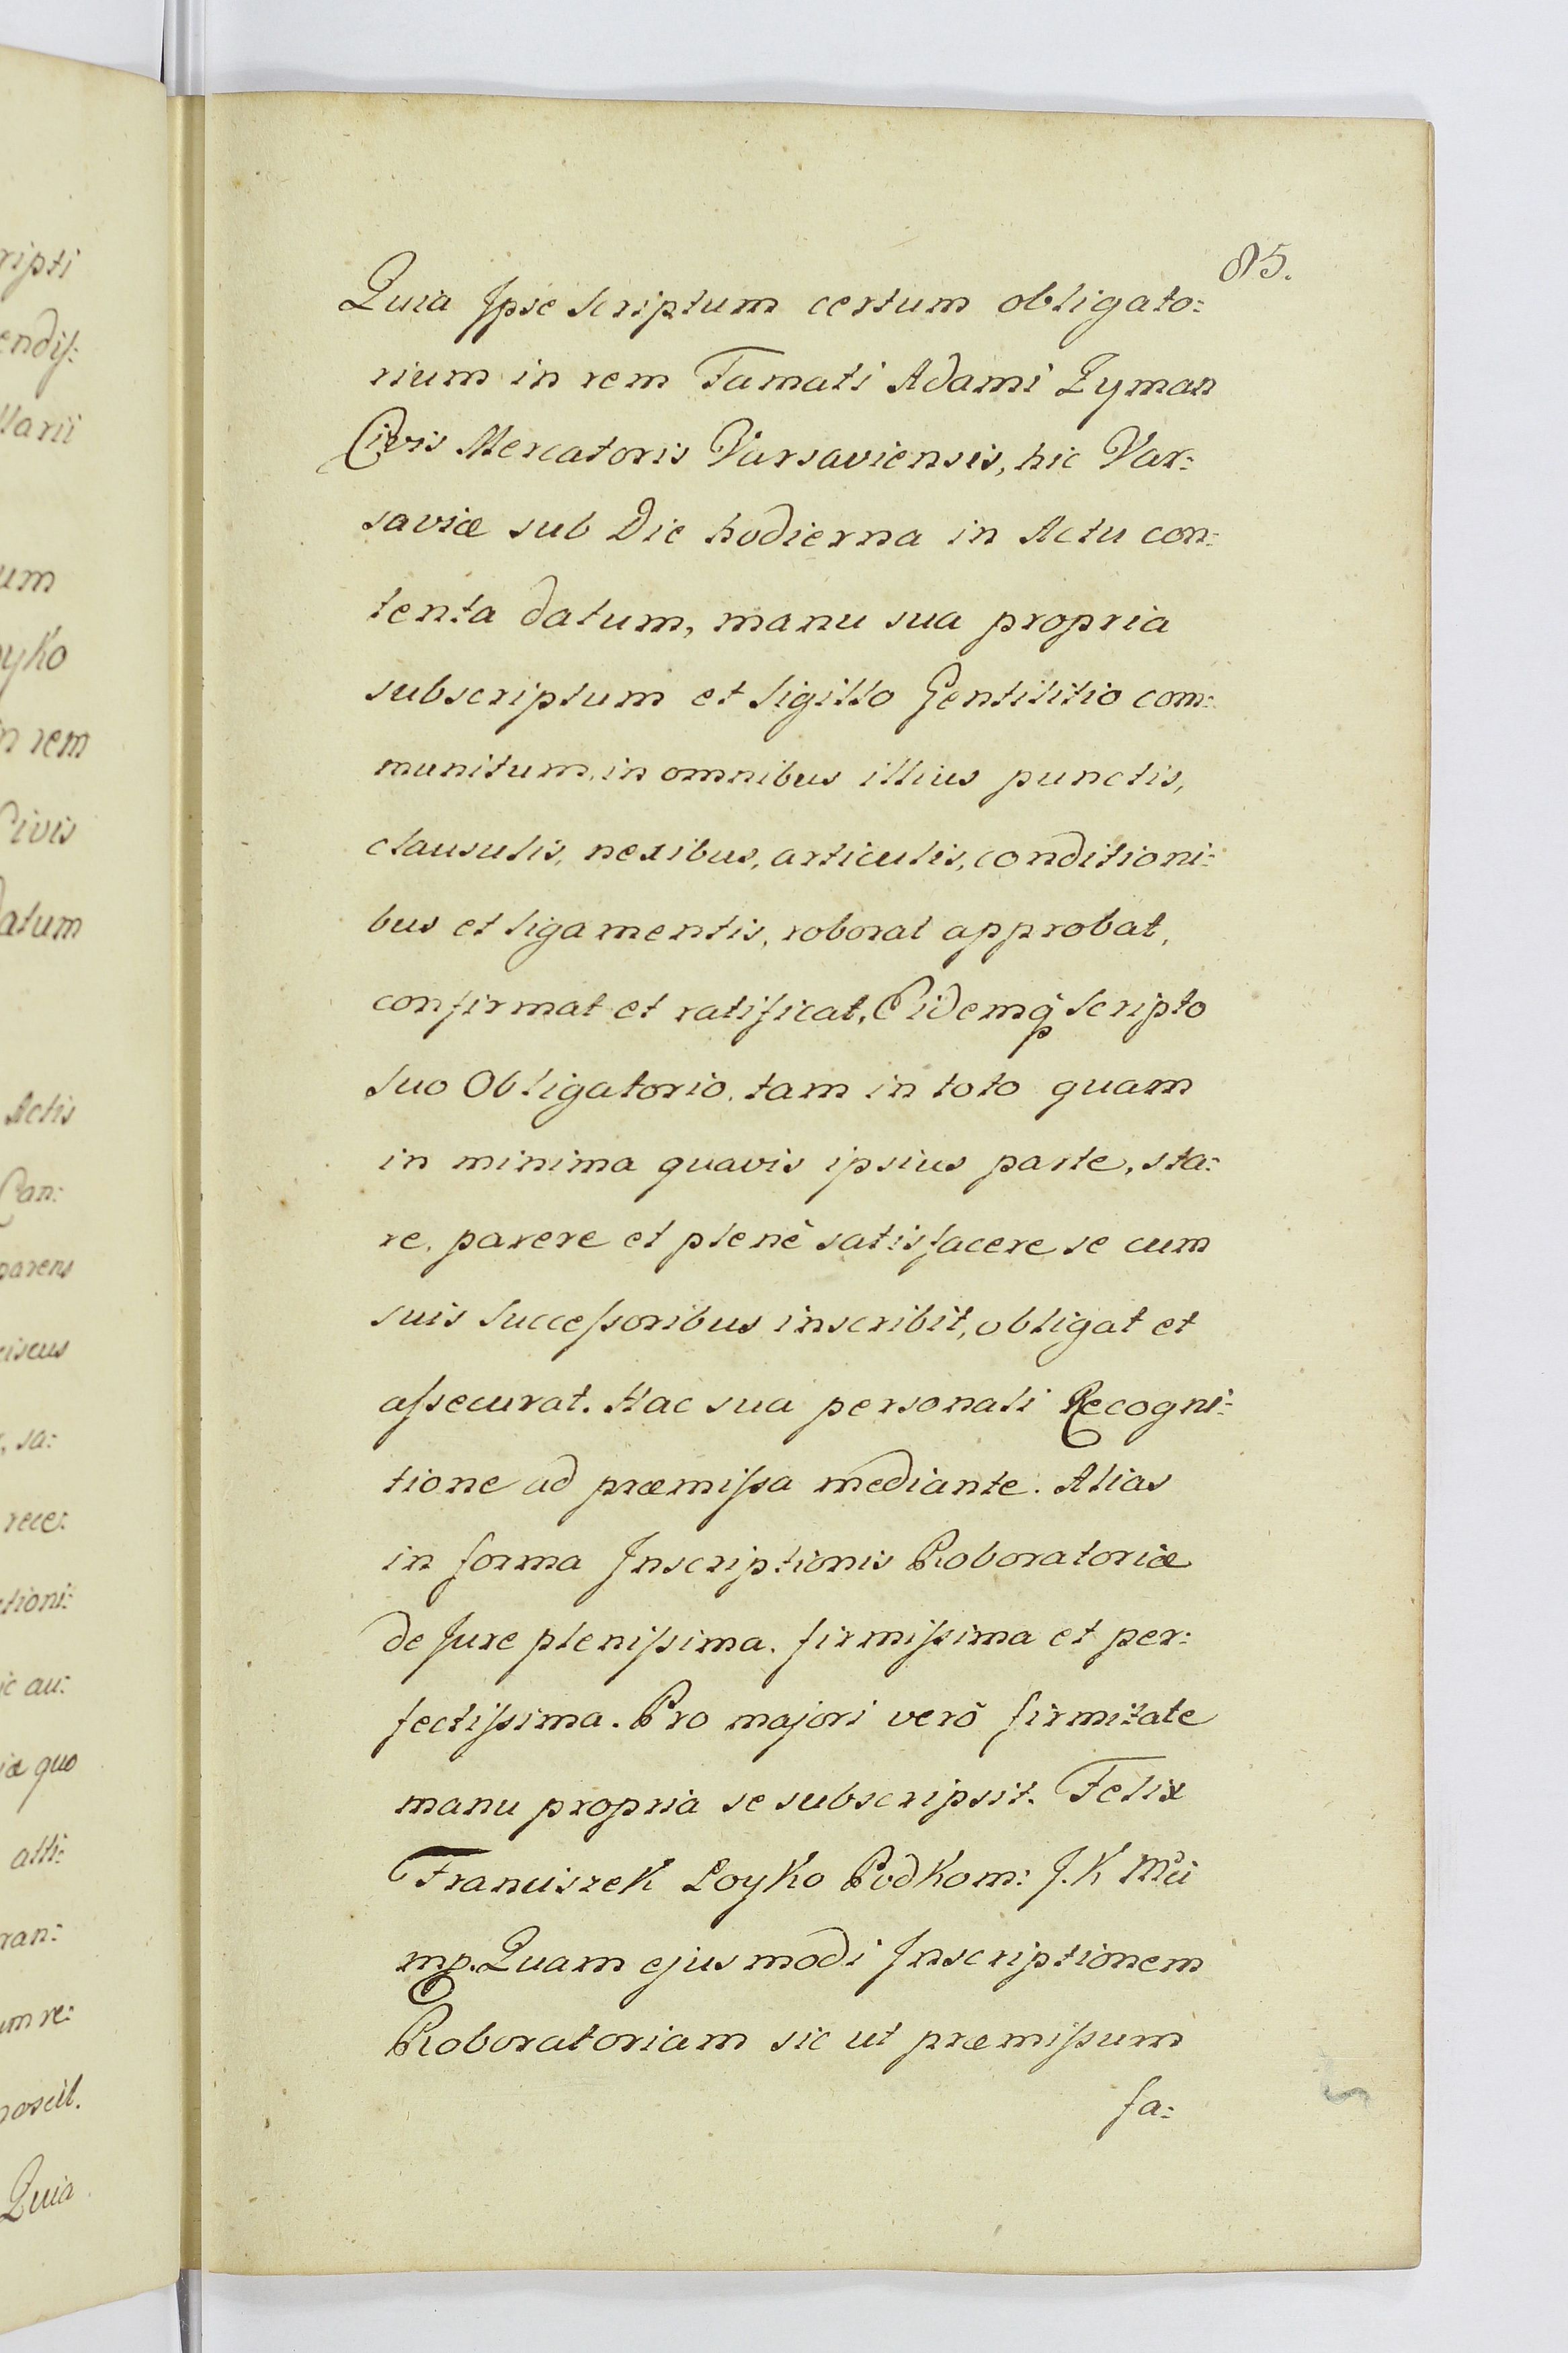 85.
Quia Ipse Scriptum certum obligato:
rium in rem Famati Adami Zyman
Civis Mercatoris Varsaviensis, hic Var:
saviæ sub Die hodierna in Actu con:
tenta datum, manu sua propria
subscriptum et Sigillo Gentilitio com:
munitum, in omnibus illius punctis,
clausulis, nexibus, articulis, conditioni:
bus et ligamentis, roborat approbat,
confirmat et ratificat, Eidemq Scripto
Suo Obligatorio, tam in toto quam
in minima quavis ipsius parte, sta:
re, parere et plenè satisfacere se cum
suis Succeſsoribus inscribit, obligat et
aſsecurat. Hac sua personali Recogni:
tione ad præmiſsa mediante. Alias
in forma Inscriptionis Roboratoriæ
de Jure pleniſsima, firmiſsima et per:
fectiſsima. Pro majori verò firmitate
manu propria se subscripsit. Felix
Franciszek Loyko Podkom: J. K Mci
mp. Quam ejusmodi Inscriptionem
Roboratoriam sic ut præmiſsum
fa:
ripti
endiſ:
llarii
um
oyko
n rem
Civis
datum
Actis
Can:
parens
ciscus
, sa:
rece:
ctioni:
ic au:
iæ quo
atti:
ran:
um re:
poscit.
Quia